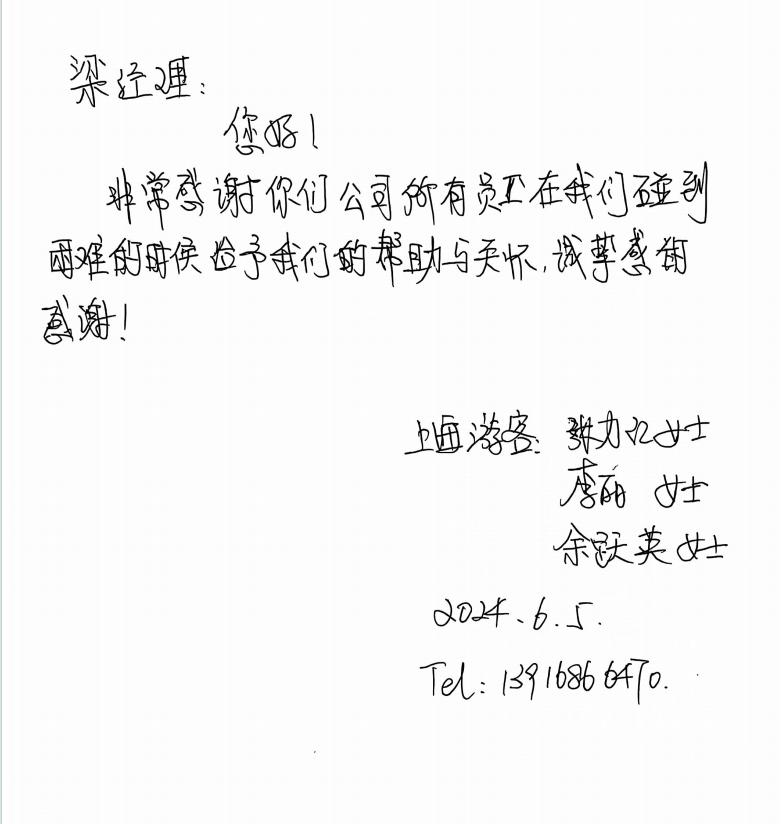 梁经理:
您好!
非常感谢你们公司所有员工在我们碰到
困难的时候给予我们的帮助与关怀,诚挚感谢
感谢!
上海游客: 张力 女士
李丽 女士
余跃英女士
2024.6.5.
Tel: 13916866470.